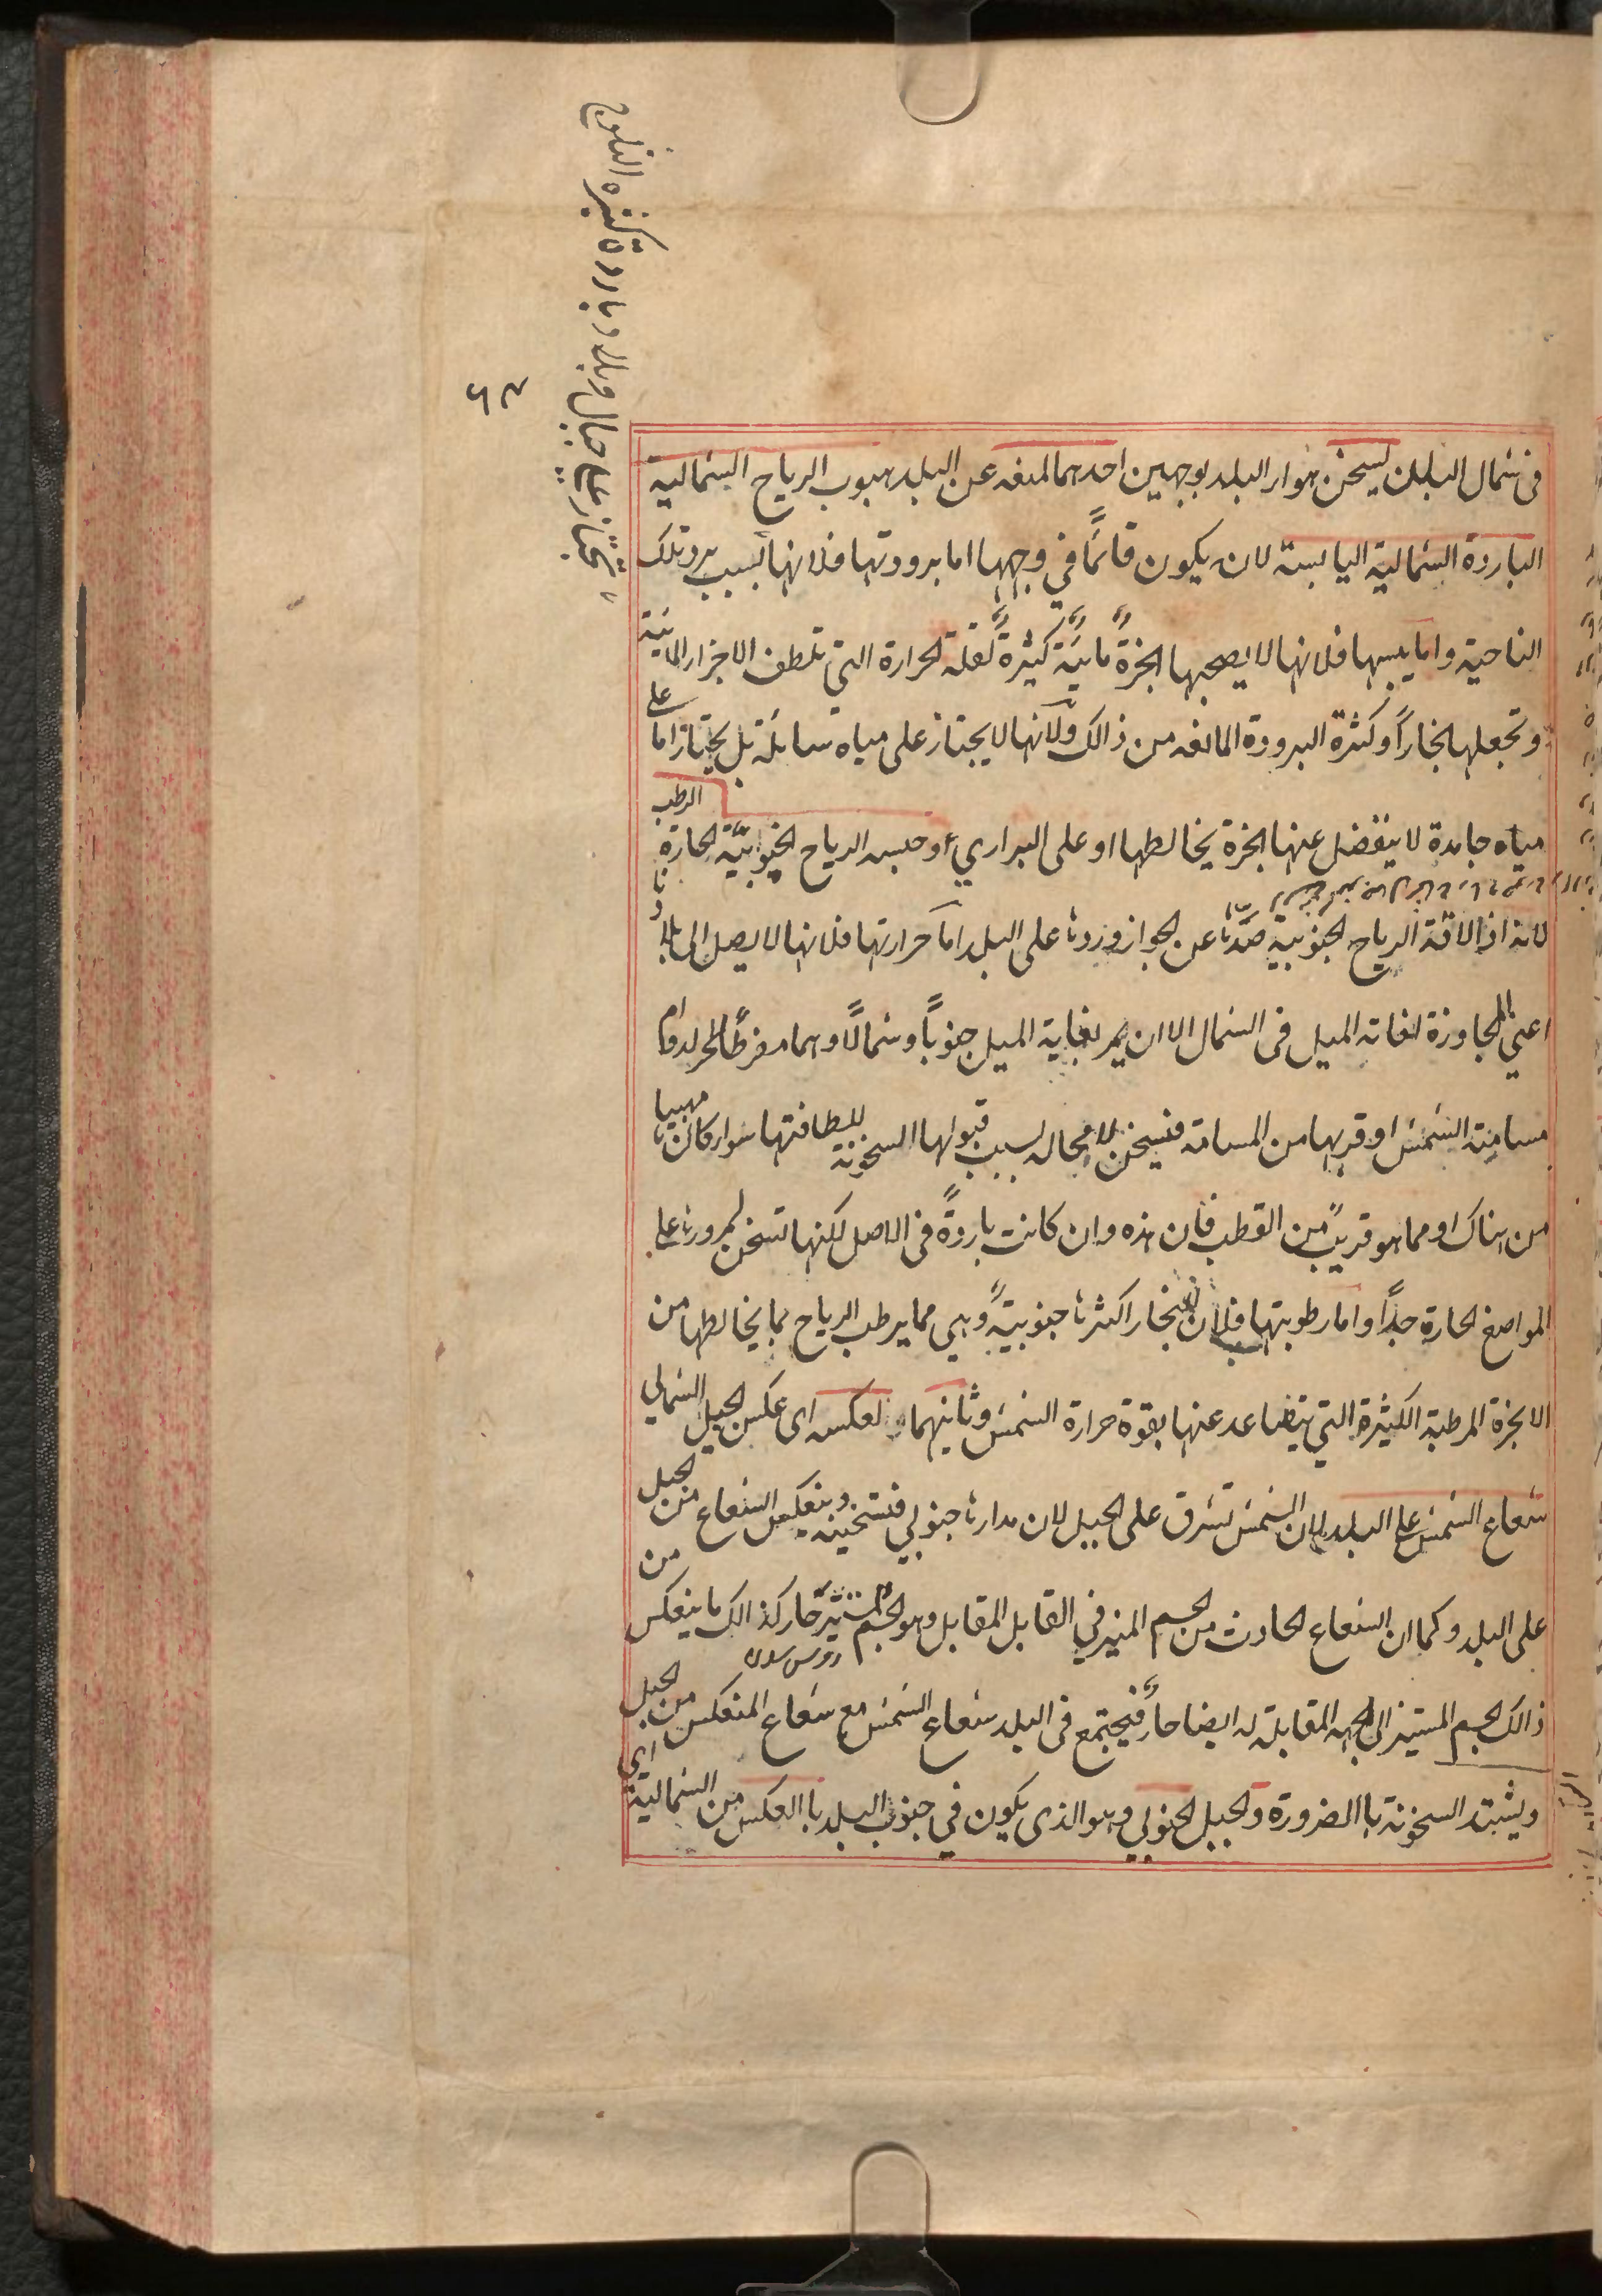 تجتاز على جبال وبلاد باردة كثيره الثلوج
٦٢
فى شمال البلدان ليسخن هواء البلد بوجهين احدهما لمنعه عن البلد هبوب الرياح الشمالية
الباردة الشمالية اليابسة لان يكون قائمًا في وجهها اما برودتها فلانها بسبب برد تلك
الناحية واما يبسها فلانها لا يصحبها ابخرةً مائيةً كثيرةً لقلة الحرارة التي تلطف الاجزاء المائية
وتجعلها بخاراً وكثرة البرودة المانعه من ذالك ولانها لا يجتاز على مياه سائلة بل يجتاز اما على
مياه جامدة لا ينفصل عنها ابخرة يخالطها او على البراري او حبسه الرياح الجنوبية الحارة الرطب
لانه اذا لاقته الرياح الجنوبية صدّها عن الجواز وردها على البلد اما حرارتها فلانها لا يصل الى بلادنا
اعني المجاوزة لغاته الميل فى الشمال الا ان يمر بغاية الميل جنوباً وشمالًا وهما مفرطا الحر لدوام
مسامتة الشمس او قربها من المسامته فتسخن لا محاله لسبب قبولها السخونة للطافتها سواء كان مهبها
من هناك او مما هو قريب من القطب فأن هذه وان كانت باردةً فى الاصل لكنها تسخن لمرورها على
المواضع الحارة جداً واما رطوبتها فلان البخار اكثرها جنوبيةً وهي مما يرطب الرياح بما يخالطها من
الابخرة المرطبة الكثيرة التي يتصاعد عنها بقوة حرارة الشمس وثانيهما لعكسه اى عكس الجبل الشمالي
شعاع الشمس على البلد لان الشمس تشرق على الجبل لان مدارها جنوبي فتسخينه وينعكس الشعاع من الجبل
على البلد وكما ان الشعاع الحادث من الجسم المنير في القابل المقابل وهو الجسم المستنير حار كذالك ما ينعكس من
ذالك الجسم المستنير الى الجهه المقابلة له ايضا حارً فيجتمع فى البلد شعاع الشمس مع شعاع المنعكس من الجبل
ويشتد السخونة باالضرورة والجبل الجنوبي وهو الذى يكون في جنوب البلد باالعكس من الشمالية اى